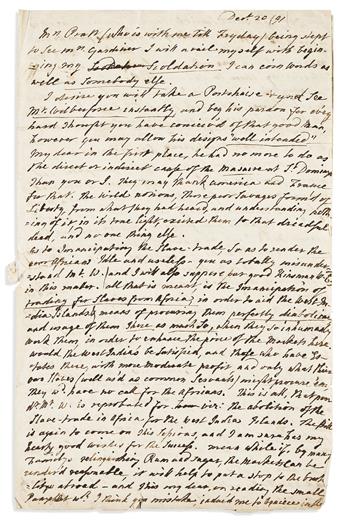 Decr 20 /91
Mrs Pratt (who is with me till Fryday) being slept
to see Mrs Gardiner I will avail myself with begin-
ning my Scoldation I can coin words as
well as somebody else.
I desire you will take a Portshaise & and see
Mr Wilberforce instantly and beg his pardon for every
hard thought you have conceiv'd of that good man,
however you may allow his designs "well intended"
My dear in the first place, he had no more to do as
the direct or indirect cause of the Masacre at St Domingo
than you or I. they may thank America and France
for that. the Wretches notions, those poor Savages form'd of
Liberty, from what they had heard, and understanding, noth
ing of it in its true light, excited them to that dreadful
deed, and no one thing else.
As to Emancipating the Slave-trade, so as to render the
poor Africans Idle and useless – you as totally misunder-
stand Mr W. and I will also suppose our good Kinsman
in this matter. all that is meant is the Emancipation of
trading for Slaves from Africa, in order to aid the West In-
die Islands means of procuring them perfectly diabolical
and usage of them there as much so, when they so inhumanly
work them, in order to enhance the price of the Markets here
would the West Indias be satisfied, and those who have Es-
tates there, with more moderate profit and only what their
own Slaves (well aid as common Servants) might procure 'em,
they wd have no call for the Africans. this is all, that poor
Mr W. is reproach'd for. however: the abolition of the
Slave-trade in Africa for the West Indias Islands. the
is again to come on this Spring, and I am sure has my
hearty good wishes for the success. mean while if by many
familys relinquishing Rum and Sugar, the Markets can be
render'd reasonable, it will help to put a stop to the
abroad – and this my dear, on reading the small
Pamphlet wch I think you mistake, induced me to in the